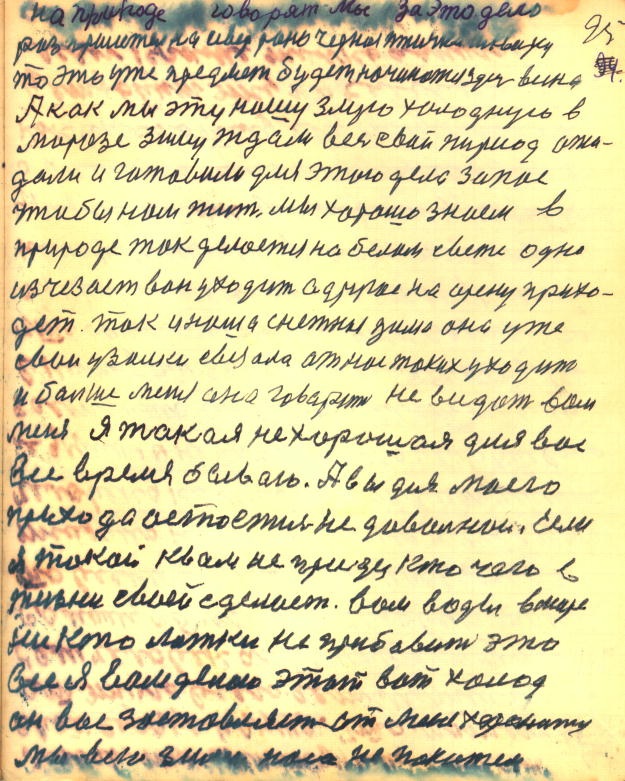 на природе говорят мы за это дело
95
раз пришёл на север рано чёрная птичка
то это уже предмет будет начинается здесь весна
А как мы эту нашу злую холодную в
морозе зиму ждали весь свой период ожи-
дали и готовили для этого дела запас
чтобы нам жить. мы хорошо знаем в
природе так делается на белом свете одно
изчезает вон уходит а другое на арену прихо-
дет. так и наша снежная зима она уже
свои узелки связала от нас таких уходит
и больше меня она говорит не видат вам
меня Я такая нехорошая для вас
все время бываю. А вы для моего
прихода остаетися не довольной. если
я такой к вам не приду кто чего в
жизни своей сделает. вам воды в море
никто латки не прибавит это
все я вам делаю этот вот холод
он вас заставляет от меня хоронится
мы всю зиму носа не покажем